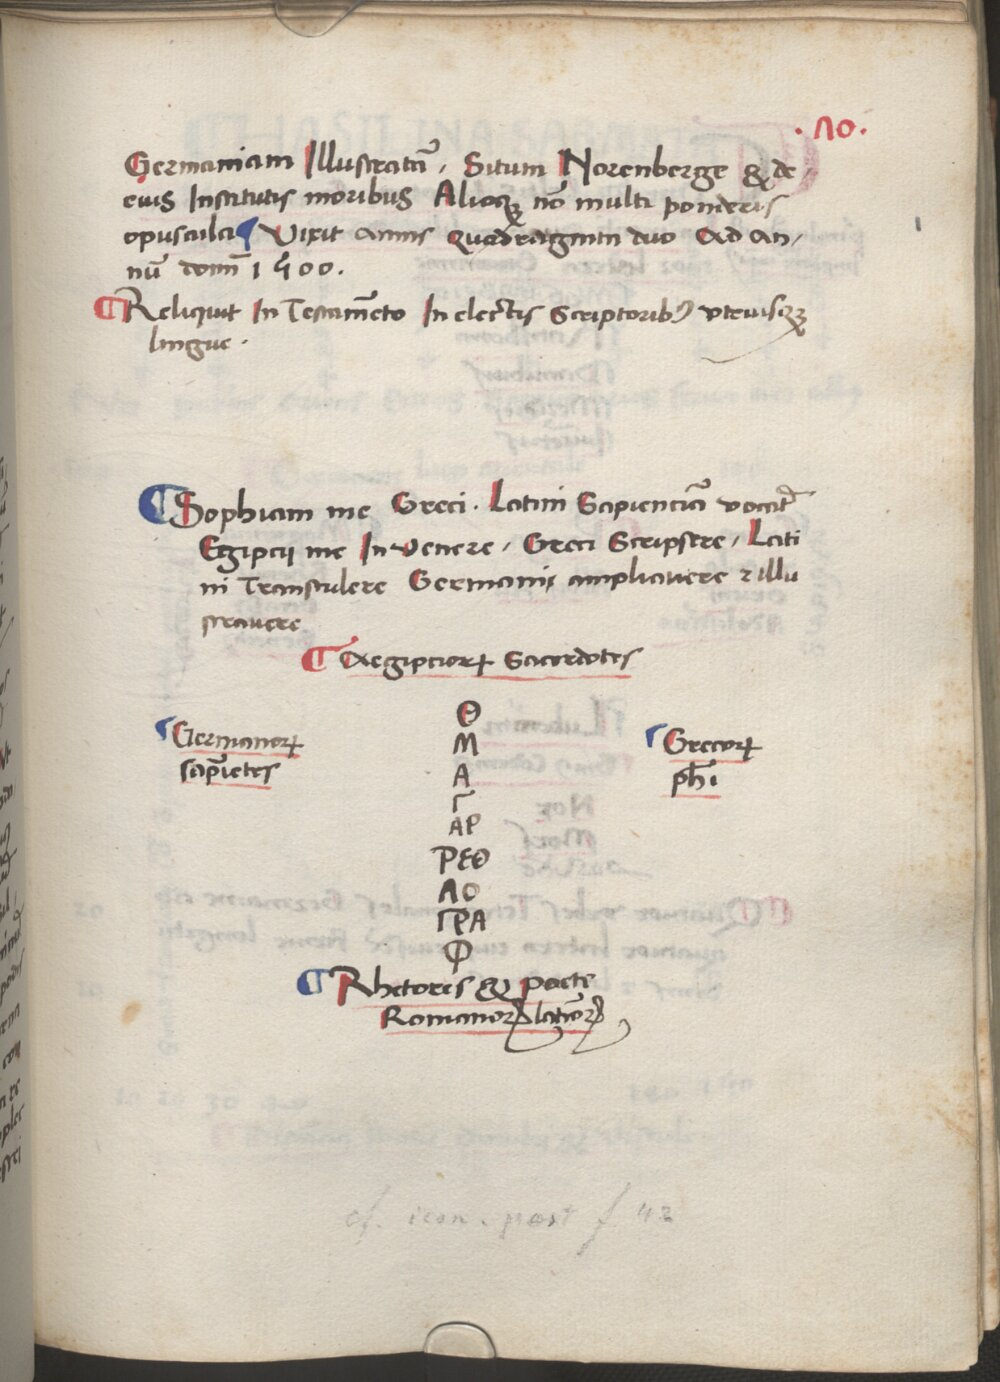 .10.
Germaniam Illustratā, Situm Norenberge & de,
eius Institutis moribus Aliosqꝫ nō multi ponderis
opuscula ¶ Vixit annis Quadraginta duo Ad an,
nū domī 1500.
¶ Reliquit In Testamēto In electis Scriptoribꝰ vtriusqꝫ
lingue .
¶ Sophiam me Greci . Latini Sapienciā vocāt
Egipcij me Inuenere , Greci Scripsere , Lati
ni Transtulere Germani ampliauere ⁊ illu
strauere
¶ Aegipcioꝝ Sacerdotes
Germanoꝝ
sapīetes
Grecoꝝ
phī
Θ
Μ
Α
Γ
ΑΡ
ΡΕΘ
ΛΟ
ΓΡΑ
Φ
¶ Rhetores & poete
Romanoꝝ latīoꝝ
cf. icon. post f 42